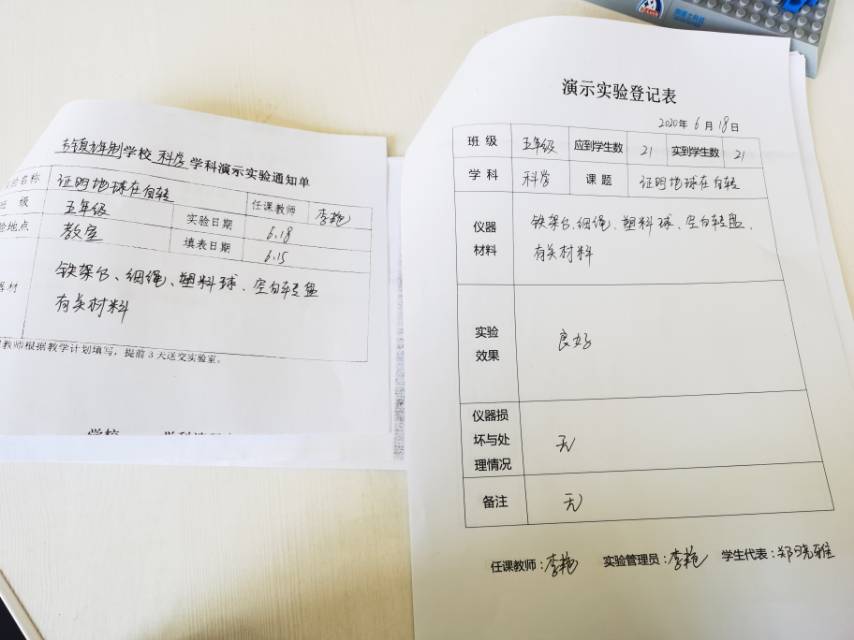 学校 科学 学科演示实验通知单
名称 证明地球在自转 任课教师 李艳
级 五年级 实验日期 6.18
验地点 教室 填表日期 6.15
器材 铁架台、细绳、塑料球、空白转盘
有关材料
教师根据教学计划填写，提前3天送交实验室。
演示实验登记表
2020年6月18日
班级 五年级 应到学生数 21 实到学生数 21
学科 科学 课题 证明地球在自转
仪器
材料
铁架台、细绳、塑料球、空白转盘、
有关材料
实验
效果
良好
仪器损
坏与处
理情况
无
备注 无
任课教师：李艳 实验管理员：李艳 学生代表：郑晓雅